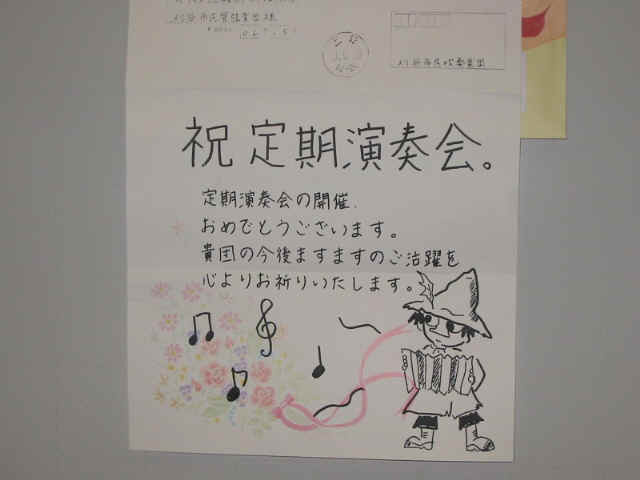 刈谷市民管弦楽団様
刈谷市民吹奏楽団
祝 定期演奏会。
定期演奏会の開催、
おめでとうございます。
貴団の今後ますますのご活躍を
心よりお祈りいたします。